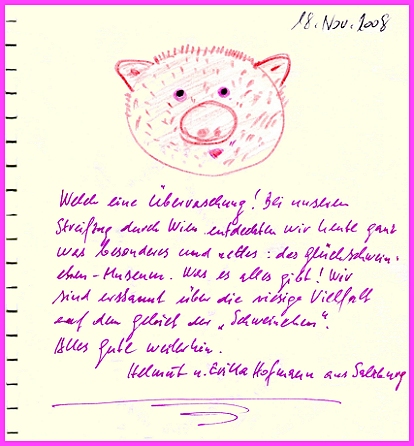 18. Nov. 2008
Welch eine Überraschung! Bei unserem
Streifzug durch Wien entdeckten wir heute ganz
was besonderes und nettes: das Glückschwein-
chen-Museum. Was es alles gibt! Wir
sind erstaunt über die riesige Vielfalt
auf dem gebiet der „Schweinchen".
Alles gute weiterhin.
Helmut u. Hofmann aus Salzburg